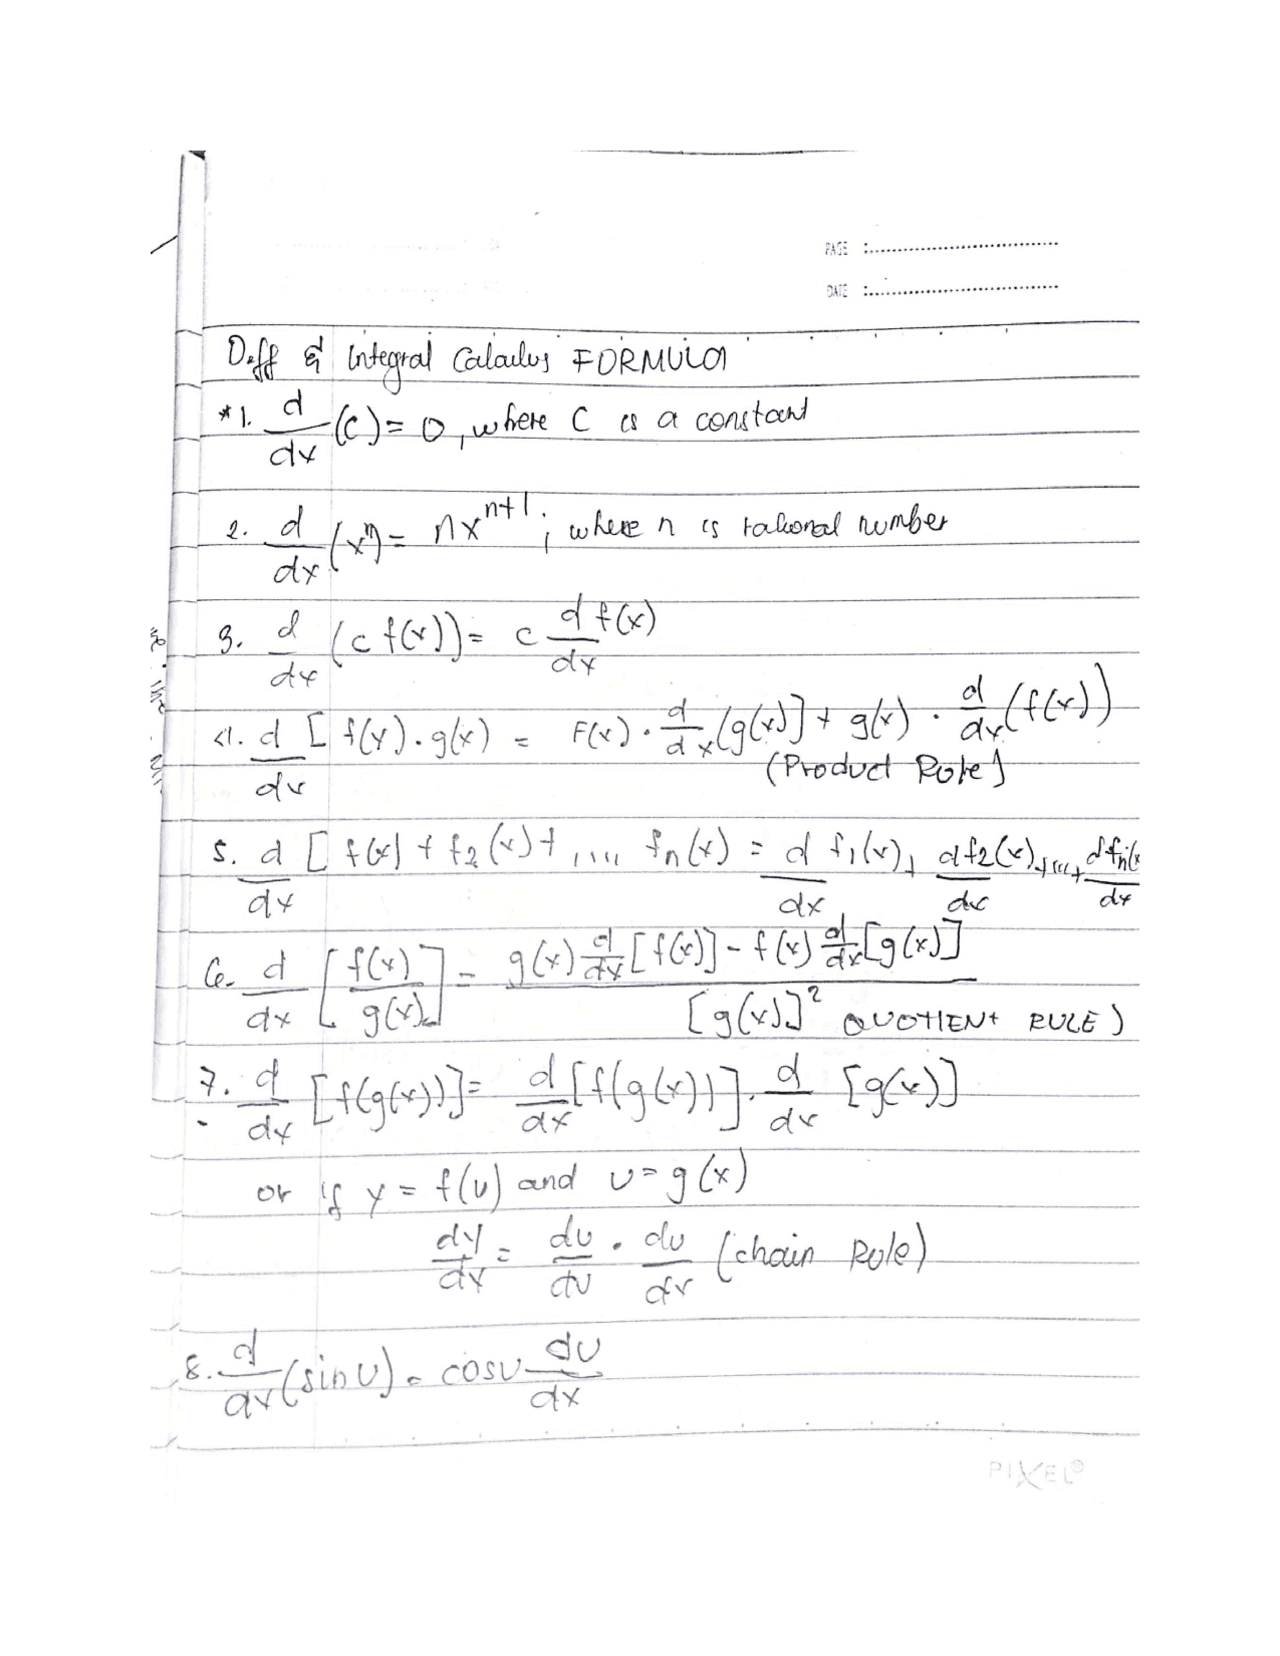 PAGE :
DATE :
Diff & Integral Calculus FORMULA
*1. d/dx (c) = 0, where C is a constant
2. d/dx (xⁿ) = nxⁿ⁺¹; where n is rational number
3. d/dx (c f(x)) = c d f(x)/dx
4. d/dx [f(x) . g(x) = F(x) . d/dx (g(x)] + g(x) . d/dx (f(x))
(Product Rule)
5. d/dx [f(x) + f2(x) + ,,,,, fn(x) = d f1(x)/dx + df2(x)/dx + ,,,, + dfn(x/dx
6. d/dx [f(x)/g(x)] = g(x) d/dx [f(x)] - f(x) d/dx [g(x)] / [g(x)]² QUOTIENT RULE)
7. d/dx [f(g(x))] = d/dx [f(g(x))] . d/dx [g(x)]
or if y = f(u) and u = g(x)
dy/dx = du/du . du/dx (chain Rule)
8. d/dx (sin u) = cosu du/dx
PIXEL®